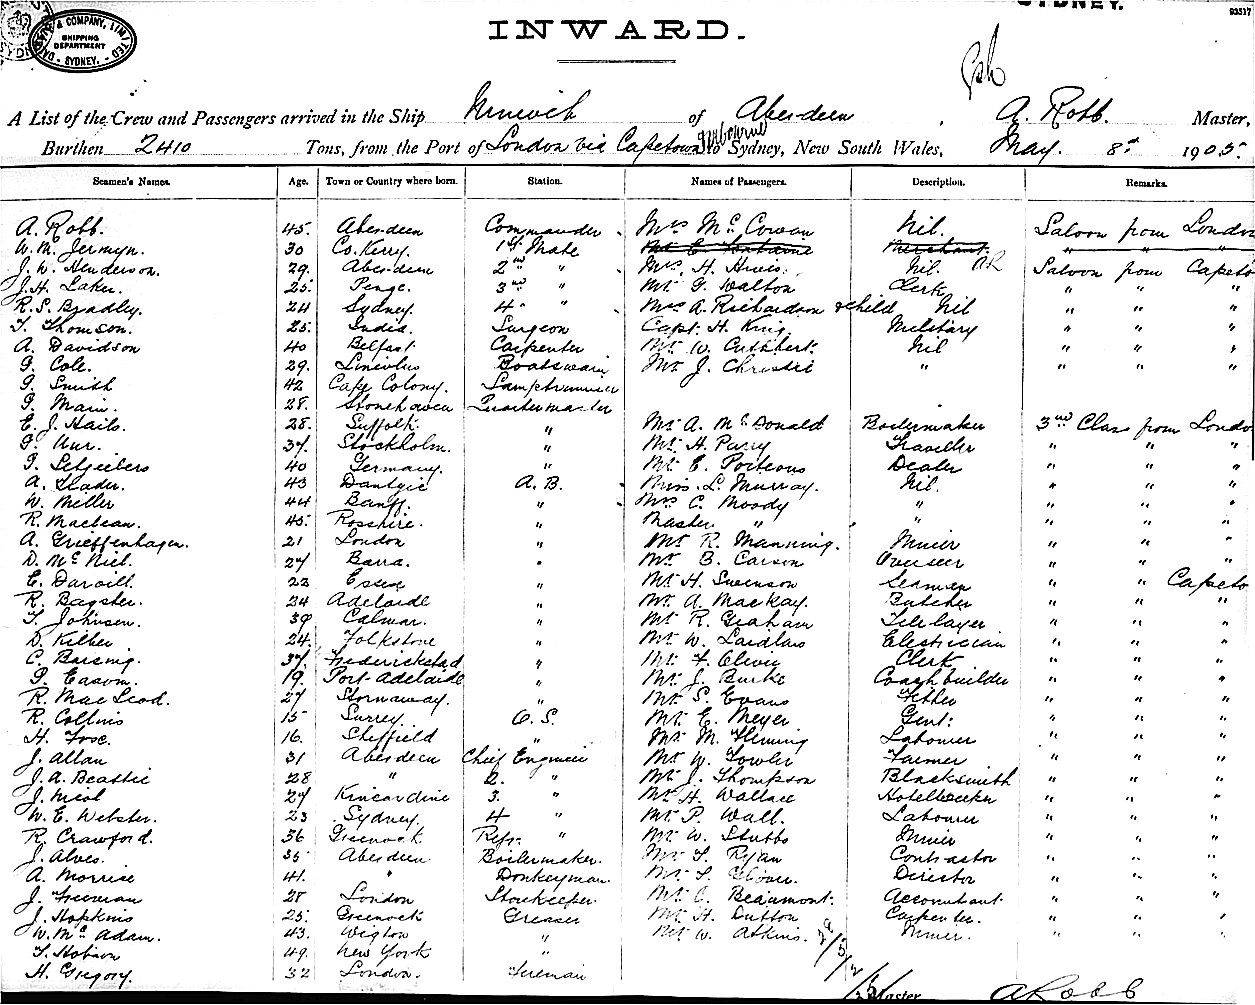 SYDNEY.
93517
& COMPANY, LIMITED
SHIPPING
DEPARTMENT
SYDNEY.
INWARD.
A List of the Crew and Passengers arrived in the Ship of Aberdeen, A. Robb. Master,
Burthen 2410 Tons, from the Port of London via Capetown to Sydney, New South Wales, May. 8th 1905.
Seamen's Names. Age. Town or Country where born. Station. Names of Passengers. Description. Remarks.
A. Robb. 45. Aberdeen Commander Mrs McCowan Nil. Saloon from London
W. M. Jermyn. 30 Co. Kerry. 1st Mate Merchant. " " "
J. W. Henderson. 29. Aberdeen 2nd " Mrs. H. Nil. AR Saloon from Capeto
J. H. Laker. 25. Penge. 3rd " Mr G. Walton Clerk " " "
R. S. Bradley. 24 Sydney. 4th " Mrs A. Richardson & child Nil " " "
T. Thomson. 25. India. Surgeon Capt. H. King. Military " " "
A. Davidson 40 Belfast Carpenter Mr. W. Cuthbert. Nil " " "
G. Cole. 29. Lincolns Boatswain Mr J. Christie " " " "
G. Smith 42 Cape Colony. Lamptrimmer
G. Main. 28. Stonehaven Quartermaster
E. J. Hails. 28. Suffolk. " Mr A. McDonald Boilermaker 3rd Class from Londo
37. Stockholm. " Mr H. Parry Traveller " " "
40 Germany. " Mr E. Porteous Dealer " " "
A. 43 Dantzic A.B. Miss. L. Murray. Nil. " " "
W. Miller 44 Banff. " Mrs C. Moody " " " "
R. Maclean. 45. Rosshire. " Master " " " " "
A. Grieffenhagen. 21 London " Mr R. Manning. Miner " " "
D. McNiel. 27 Barra. " Mr B. Carson Overseer " " "
E. Darvill. 22 Essex " Mr H. Swenson Seaman " " Capeto
R. Bagster. 24 Adelaide " Mr. A. Mackay. Butcher " " "
T. Johnsen. 39 Calmar. " Mr R. Graham Tile layer " " "
D. Kelber 24. Folkstone " Mr W. Laidlaw Electrician " " "
C. 37. Frederickstad " Mr F. Clerk " " "
G. Easom. 19. Port-Adelaide " Mr J. Burke Coachbuilder " " "
R. MacLeod. 27 Stornaway. " Mr S. Evans Fitter " " "
R. Collins 15 Surrey. O.S. Mr E. Meyer Gent: " " "
H. 16. Sheffield " Mr M. Fleming Labourer " " "
J. Allan 31 Aberdeen Chief Engineer Mr W. Fowler Farmer " " "
J. A. Beattie 28 " 2. " Mr J. Thompson Blacksmith " " "
J. Nicol 27 Kincardine 3. " Mr H. Wallace Hotelkeeper " " "
W. E. Webster. 23 Sydney. 4 " Mr P. Wall. Labourer " " "
R. Crawford. 36 Greenock Refr. " Mr W. Stubbs Miner " " "
J. Alves. 35 Aberdeen Boilermaker. Mr T. Ryan Contractor " " "
A. Morrice 41. " Donkeyman. Mr T. Glover. Director " " "
J. Freeman 28 London Storekeeper. Mr C. Beaumont. Accountant. " " "
J. Hopkins 25. Greenock Greaser Mr H. Dutton Carpenter. " " "
W. McAdam. 43. Wigton " Mr W. Atkins. Miner. " " "
T. Hobson 49. New York "
H. Gregory. 32 London. Fireman
Master A Robb